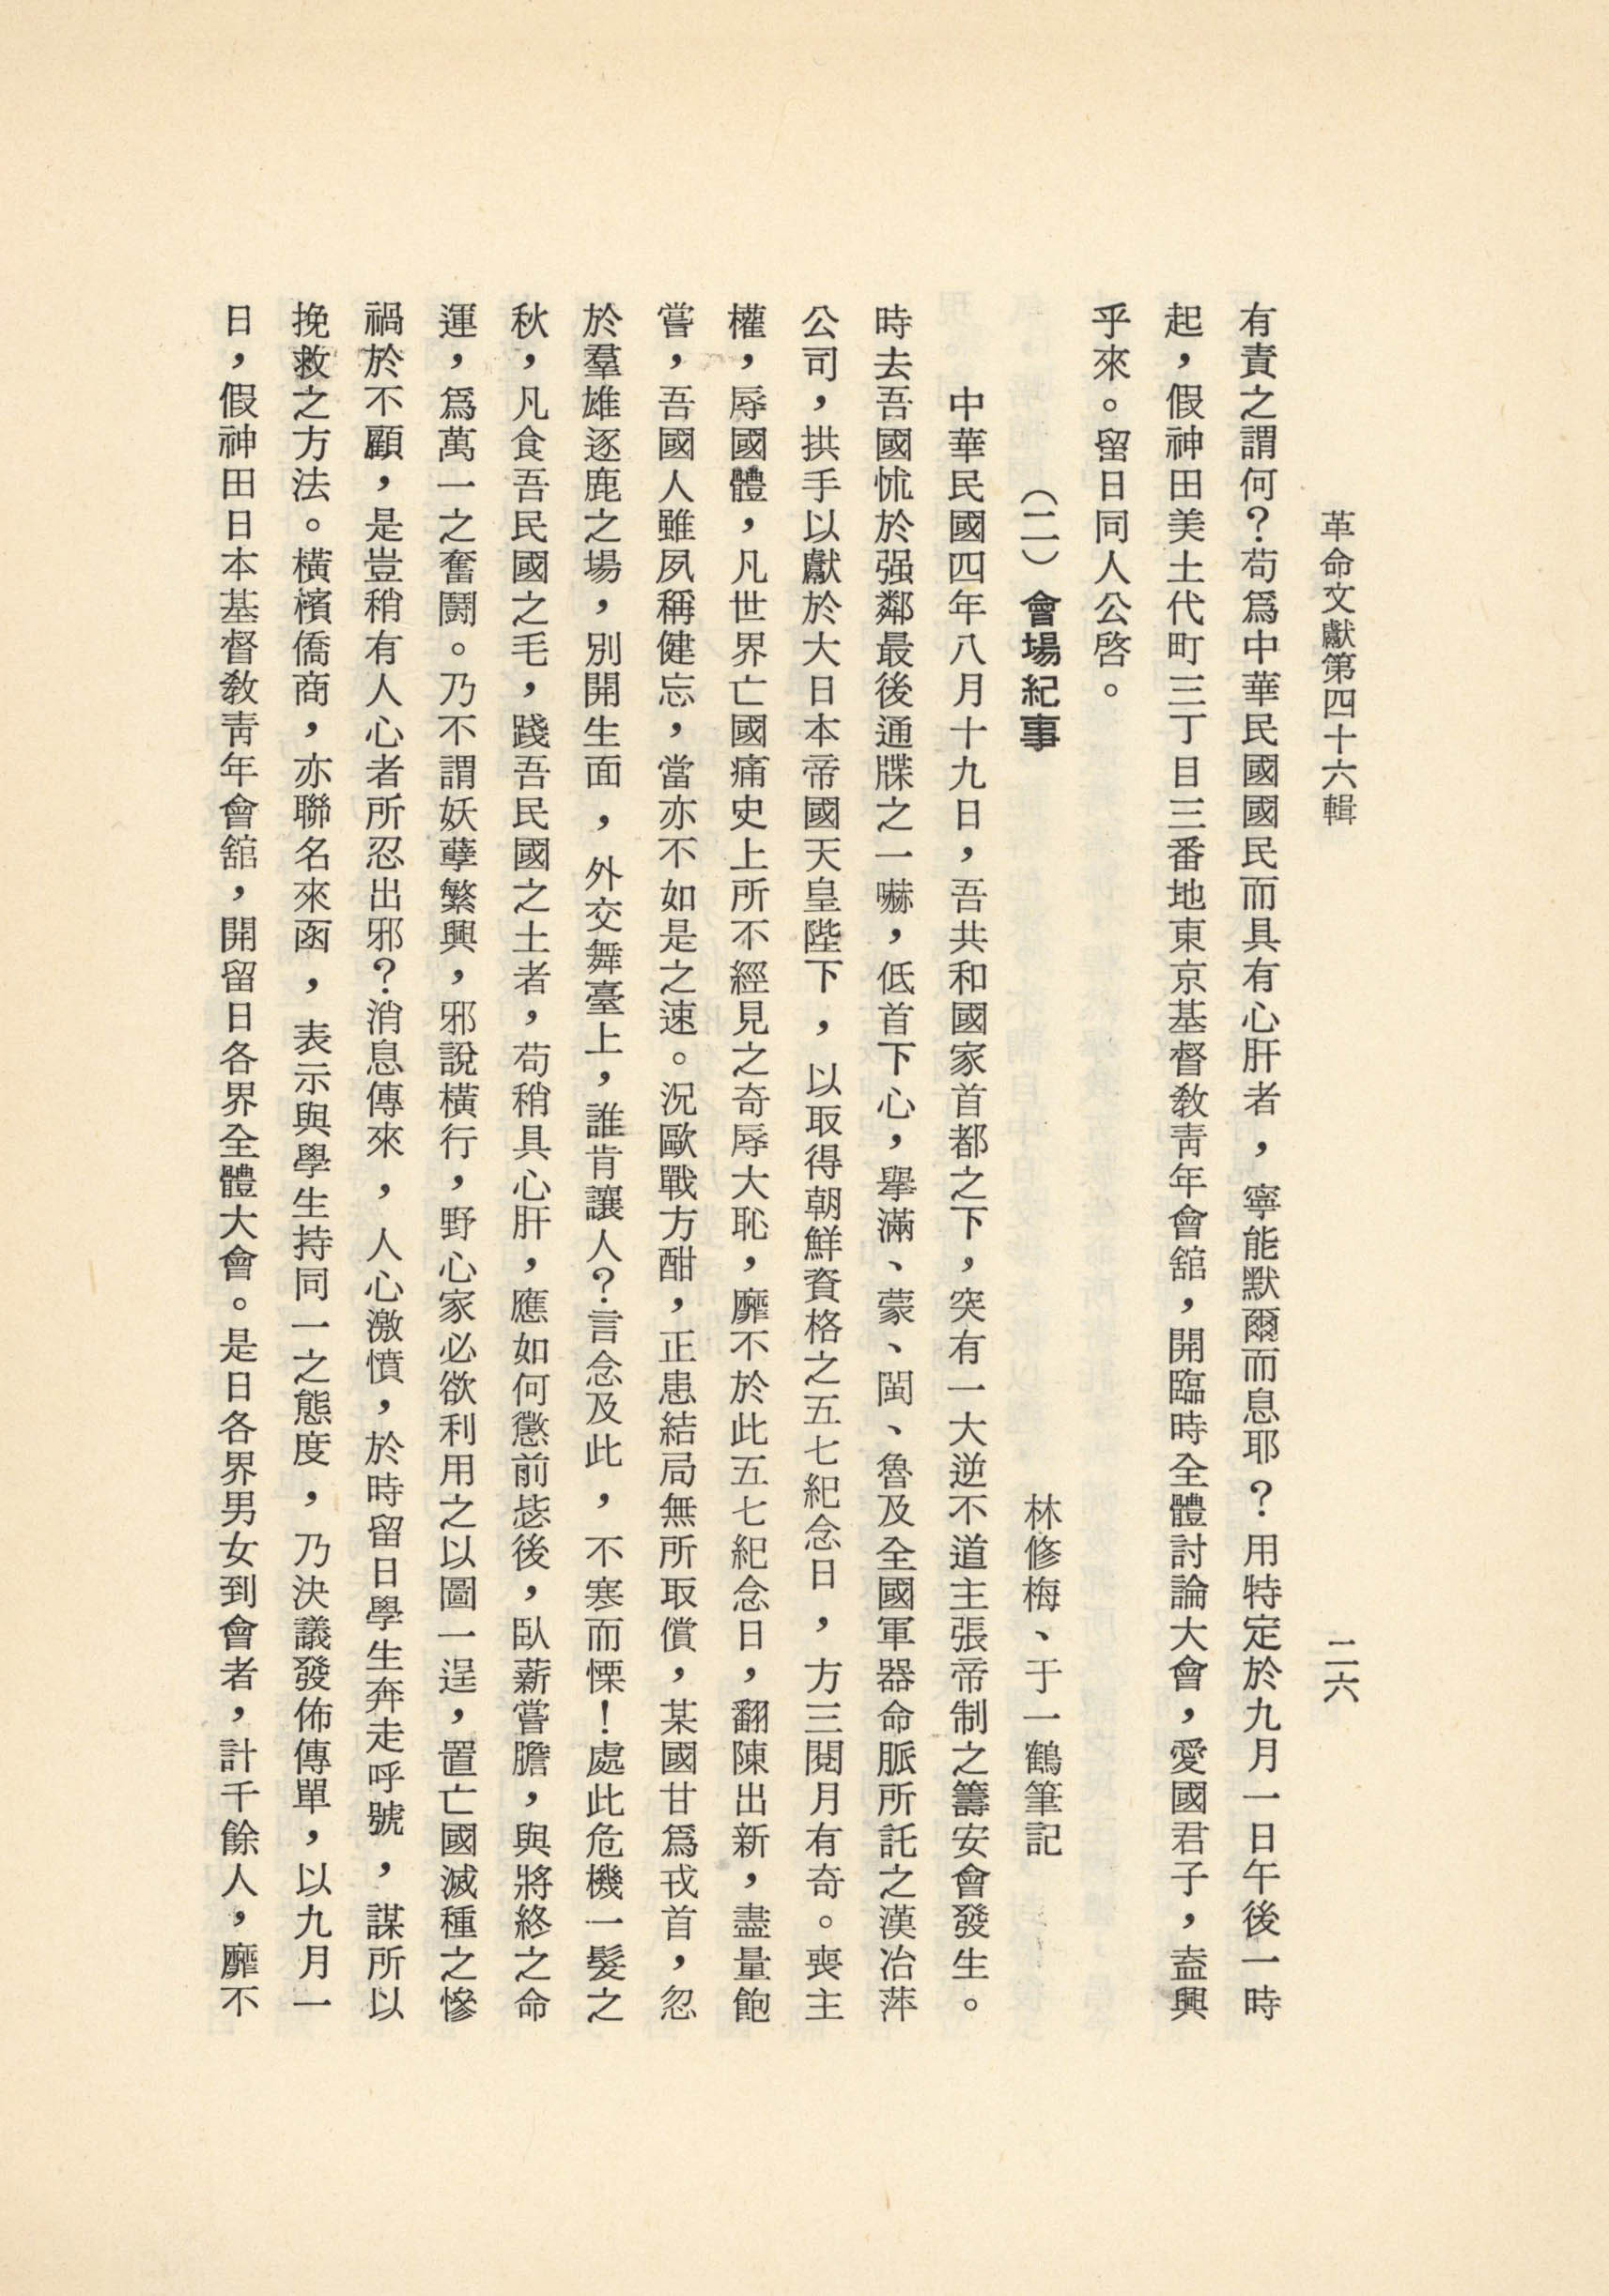 革命文獻第四十六輯
二六
有責之謂何？苟爲中華民國國民而具有心肝者，寧能默爾而息耶？用特定於九月一日午後一時
起，假神田美土代町三丁目三番地東京基督敎靑年會舘，開臨時全體討論大會，愛國君子，盍興
乎來。留日同人公啓。
（二）會場紀事
林修梅、于一鶴筆記
中華民國四年八月十九日，吾共和國家首都之下，突有一大逆不道主張帝制之籌安會發生。
時去吾國怵於强鄰最後通牒之一嚇，低首下心，擧滿、蒙、閩、魯及全國軍器命脈所託之漢冶萍
公司，拱手以獻於大日本帝國天皇陛下，以取得朝鮮資格之五七紀念日，方三閱月有奇。喪主
權，辱國體，凡世界亡國痛史上所不經見之奇辱大恥，靡不於此五七紀念日，翻陳出新，盡量飽
嘗，吾國人雖夙稱健忘，當亦不如是之速。況歐戰方酣，正患結局無所取償，某國甘爲戎首，忽
於羣雄逐鹿之場，別開生面，外交舞臺上，誰肯讓人？言念及此，不寒而慄！處此危機一髮之
秋，凡食吾民國之毛，踐吾民國之土者，苟稍具心肝，應如何懲前毖後，臥薪嘗膽，與將終之命
運，爲萬一之奮鬬。乃不謂妖孽繁興，邪說橫行，野心家必欲利用之以圖一逞，置亡國滅種之慘
禍於不顧，是豈稍有人心者所忍出邪？消息傳來，人心激憤，於時留日學生奔走呼號，謀所以
挽救之方法。橫檳僑商，亦聯名來函，表示與學生持同一之態度，乃決議發佈傳單，以九月一
日，假神田日本基督敎靑年會舘，開留日各界全體大會。是日各界男女到會者，計千餘人，靡不